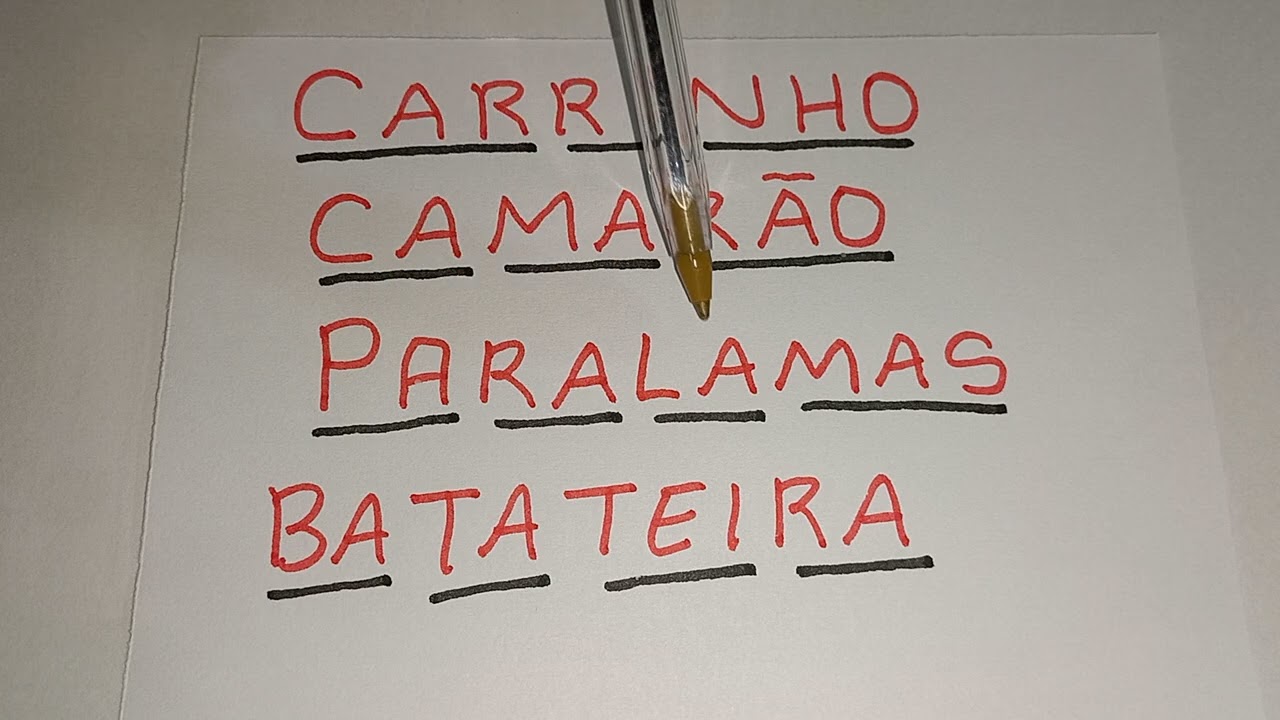 CARRINHO
CAMARÃO
PARALAMAS
BATATEIRA